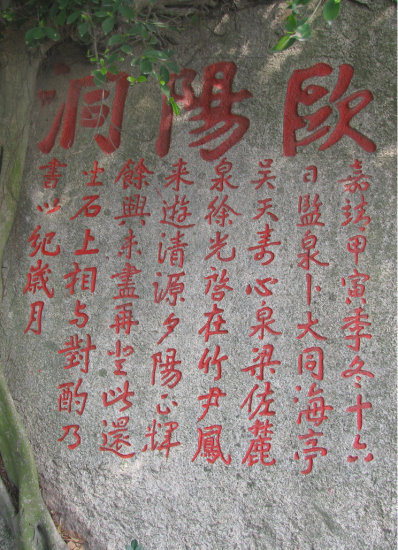 歐陽洞
嘉靖甲寅季冬十六
日監泉卜大同海亭
吴天壽心泉梁佐麓
泉徐光啓在竹尹鳳
来遊清源夕陽正輝
餘興未盡再坐此還
坐石上相与對酌乃
書以紀歲月